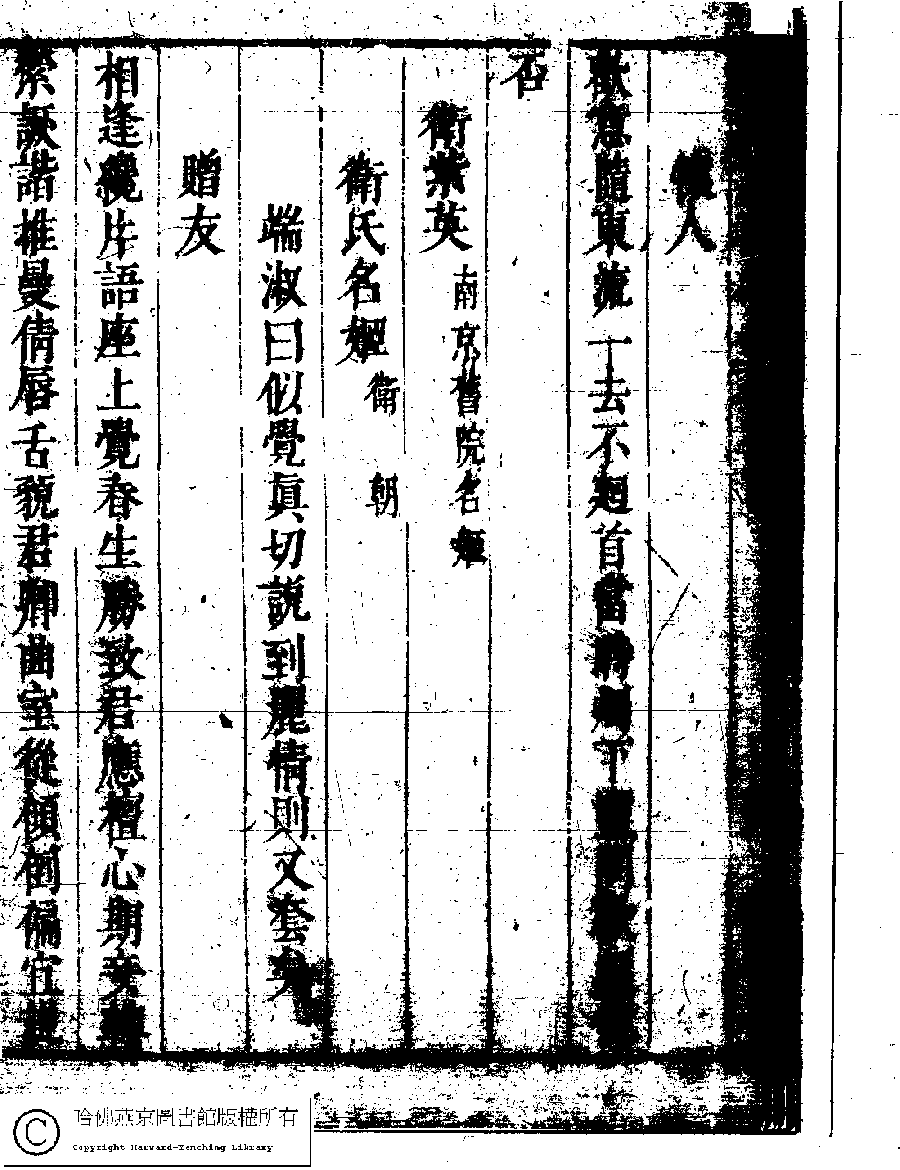 懷人
歡意隨東流一去不廻首當時
否
衛紫英 南京舊院名姬
衛氏名姬 衛 朝
端淑曰似覺眞切説到麗情則又套矣
贈友
相逢纔片語座上覺春生勝致君應檀心期妾
縈諏諧推曼倩唇舌藐君卿曲室從傾倒偏宜
哈佛燕京圖書館版權所有
Copyright Harvard-Yenching Library